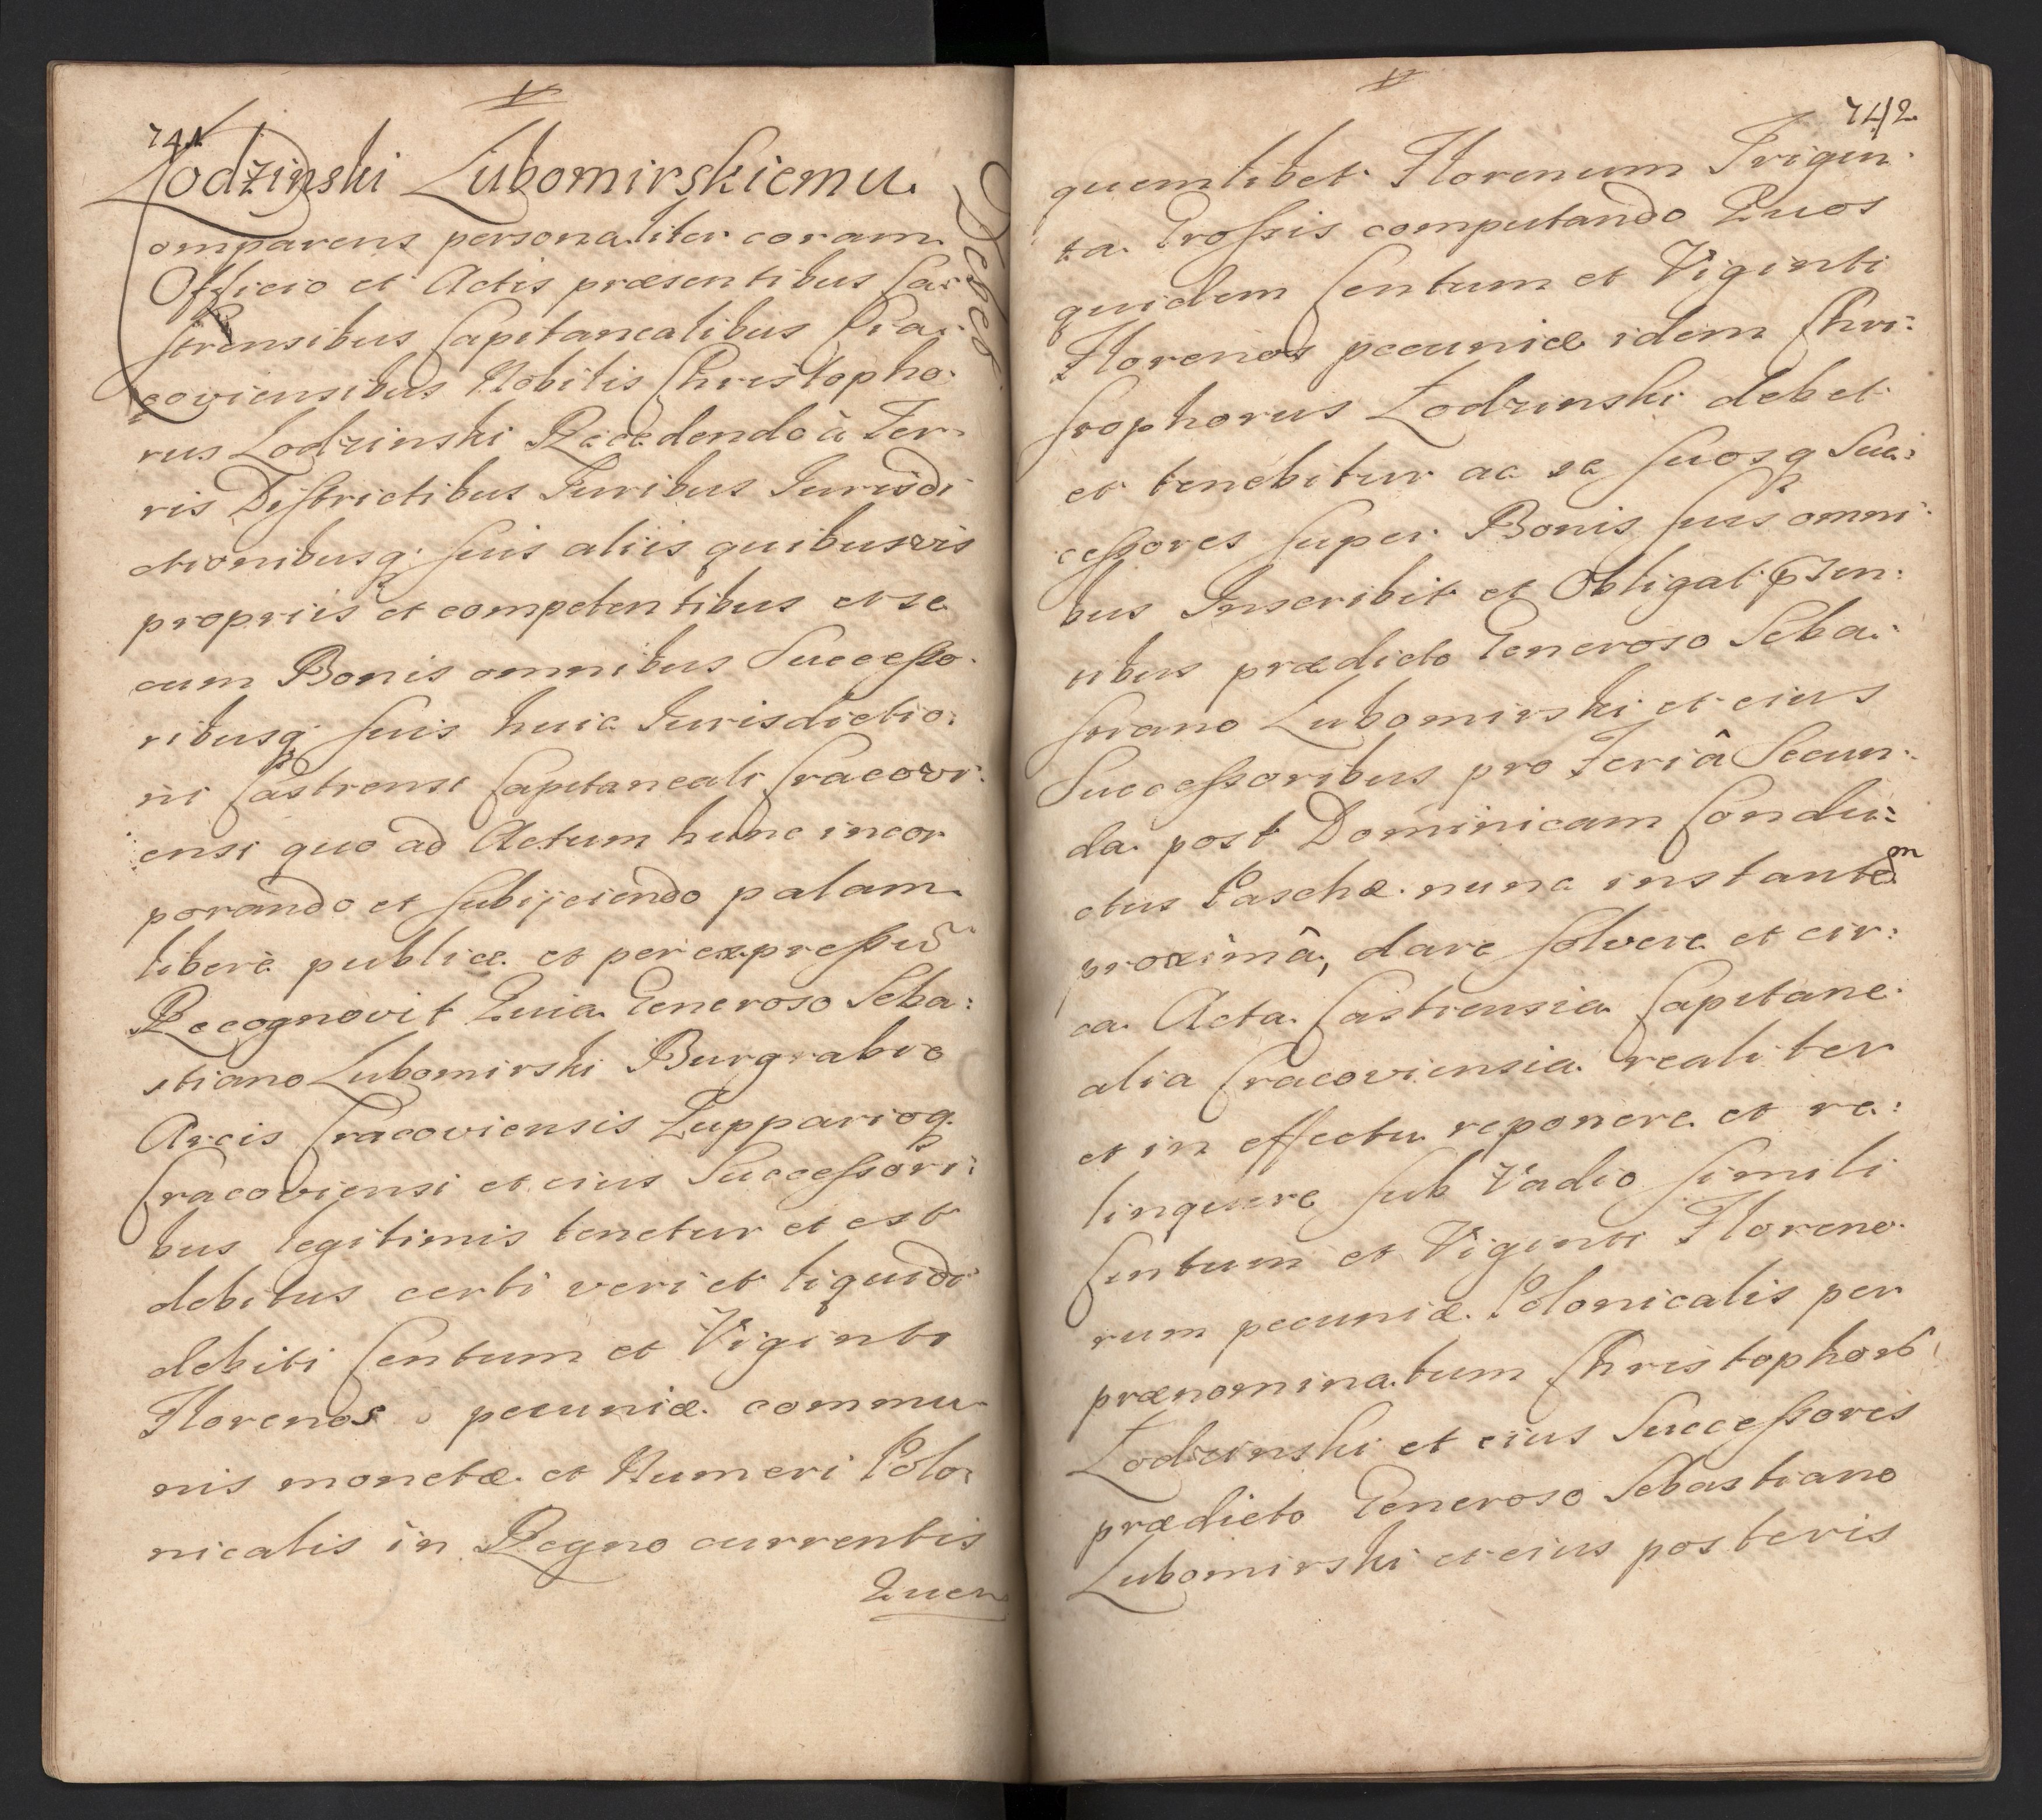 741
Lodzinski Lubomirskiemu.
Debet
Comparens personaliter coram
Officio et Actis præsentibus Ca:
strensibus Capitanealibus Cra:
coviensibus Nobilis Christopho:
rus Lodzinski Recedendo à Ter:
ris Districtibus Iuribus Iurisdi
ctionibusq: suis aliis quibusvis
propriis et competentibus et se
cum Bonis omnibus Successo:
ribusq: suis huic Iurisdictio:
ni Castrensi Capitaneali Cracovi:
ensi quo ad Actum hunc incor
porando et subijciendo palam
liberè publice et per expressũ
Recognovit Quia Generoso Seba:
stiano Lubomirski Burgrabio
Arcis Cracoviensis Zupparioq:
Cracoviensi et eius Successori:
bus legitimis tenetur et est
debitus certi veri et liquidi
debiti Centum et Viginti
Florenos pecuniæ commu
nis monetæ et Numeri Polo:
nicalis in Regno currentis
Quem
742
quemlibet Florenum Trigin:
ta Grossis computando Quos
quidem Centum et Viginti
Florenos pecuniæ idem Chri:
stophorus Lodzinski debet
et tenebitur ac se suosq Suc:
cessores super Bonis suis omni:
bus Inscribit et Obligat Psen:
tibus prædicto Generoso Seba:
stiano Lubomirski et eius
Successoribus pro Feriâ Secun:
da post Dominicam Condu:
ctus Paschæ nunc instantem
proximâ, dare solvere et cir:
ca Acta Castrensia Capitane:
alia Cracoviensia realiter
et in effectu reponere et re:
linquere sub Vadio simili
Centum et Viginti Floreno:
rum pecuniæ Polonicalis per
prænominatum Christophorũ
Lodzinski et eius Successores
prædicto Generoso Sebastiano
Lubomirski et eius posteris